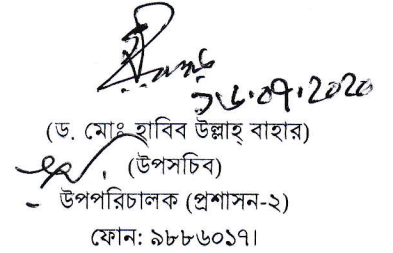 ১৬.০৭.2020
(ড. মোঃ হাবিব উল্লাহ্ বাহার)
(উপসচিব)
উপপরিচালক (প্রশাসন-২)
ফোন: ৯৮৮৬০১৭।